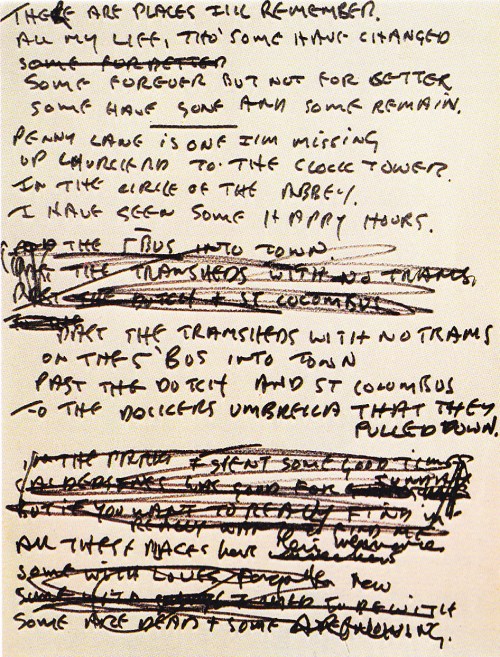 THERE ARE PLACES I'LL REMEMBER.
ALL MY LIFE, THO' SOME HAVE CHANGED
SOME FOR BETTER
SOME FOREVER BUT NOT FOR BETTER
SOME HAVE GONE AND SOME REMAIN.
PENNY LANE IS ONE I'M MISSING
UP CHURCH RD TO THE CLOCK TOWER.
IN THE CIRCLE OF THE ABBEY.
I HAVE SEEN SOME HAPPY HOURS.
THE 5 BUS INTO TOWN.
PAST THE TRAMSHEDS WITH NO TRAMS,
PAST THE DUTCH + ST COLOMBUS
PAST THE TRAMSHEDS WITH NO TRAMS
ON THE 5 BUS INTO TOWN
PAST THE DUTCH AND ST COLUMBUS
TO THE DOCKERS UMBRELLA THAT THEY
PULLED DOWN.
IN THE PARK I SPENT SOME GOOD TIMES
WAS GOOD FOR
BUT IF YOU WANT TO REALLY FIND
REALLY WANT FIND ME
ALL THESE PLACES HAVE
SOME WITH LOVERS forgotten NOW
SOME WITH
SOME ARE DEAD + SOME ARE LIVING.